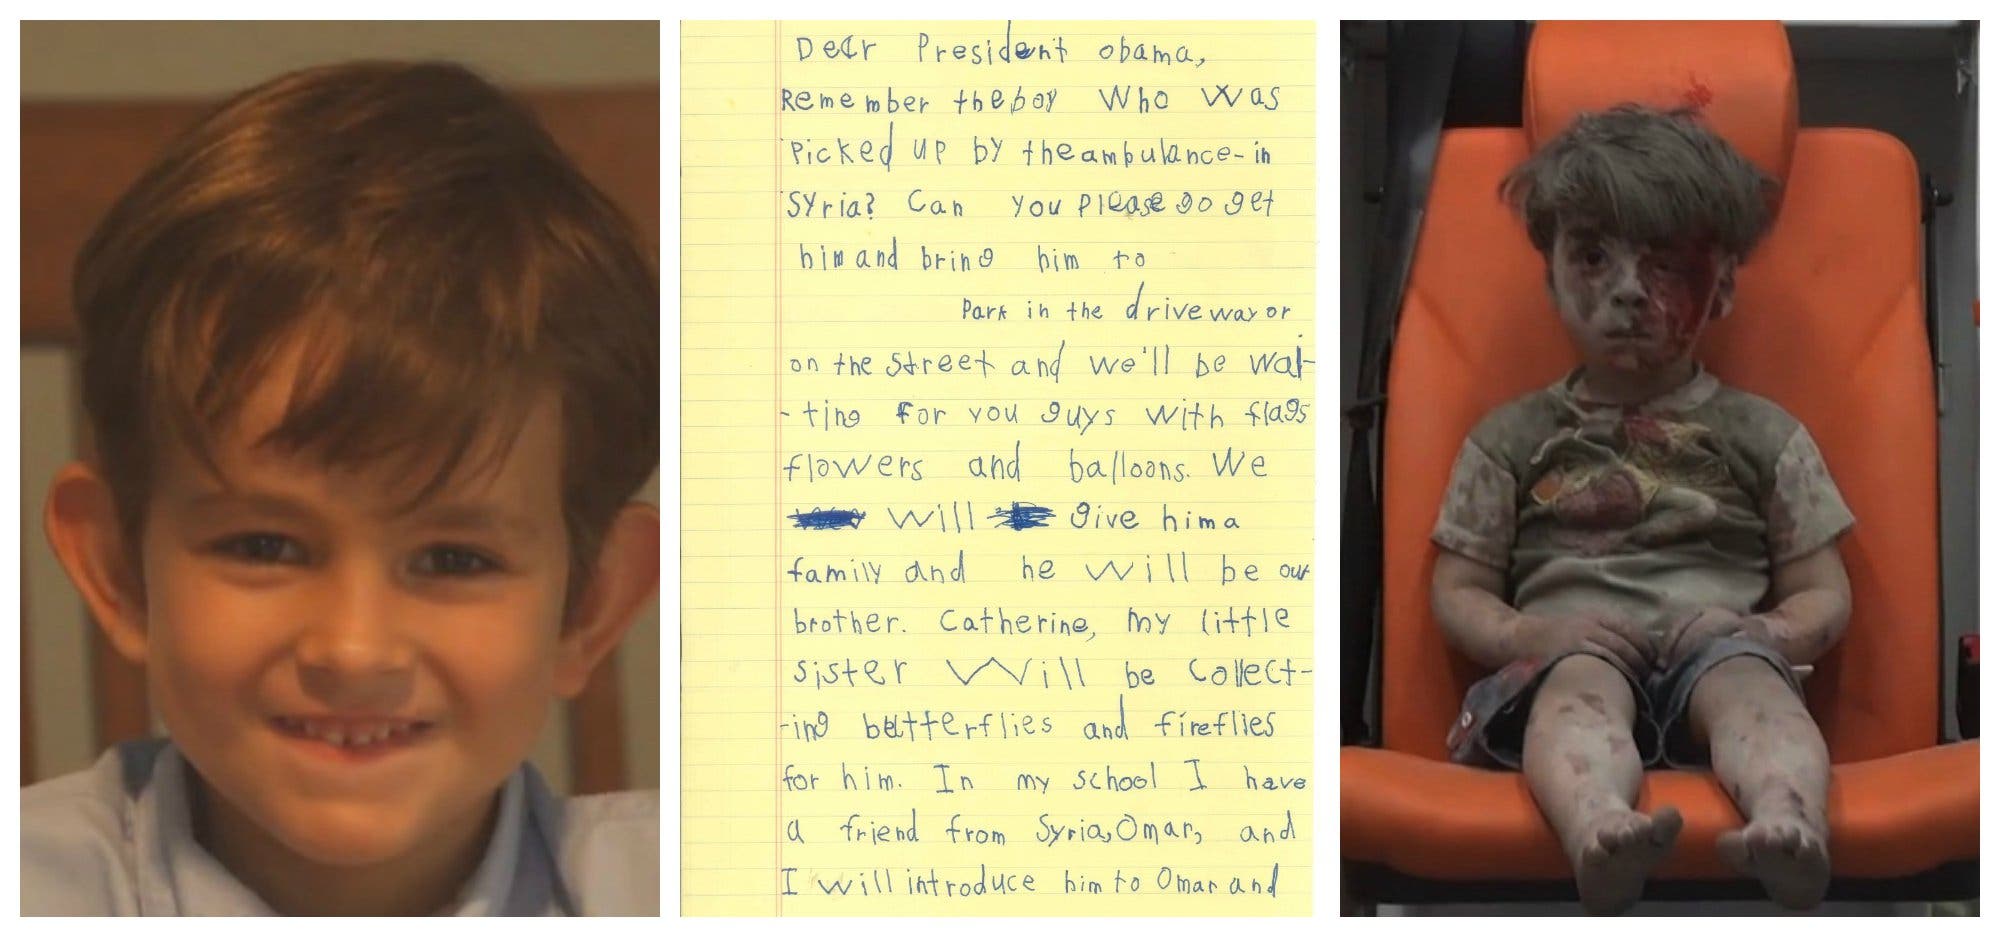 Dear President obama,
Remember the boy Who Was
Picked up by the ambulance-in
Syria? Can you please go get
him and bring him to
Park in the driveway or
on the street and we'll be wai-
-ting for you guys with flags
flowers and balloons. We
will give him a
family and he will be our
brother. Catherine, my little
sister will be collect-
-ing butterflies and fireflies
for him. In my school I have
a friend from Syria, Omar, and
I will introduce him to Omar and